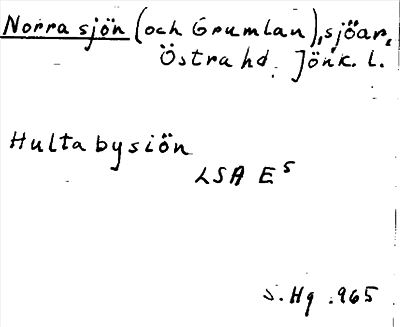 Norra sjön (och Grumlan), sjöar,
Östra hd. Jönk. l.
Hultabysiön
LSA E5
S. Hg. 965